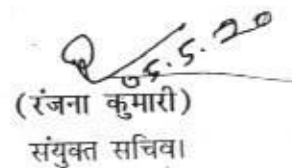 05.5.20
(रंजना कुमारी)
संयुक्त सचिव।